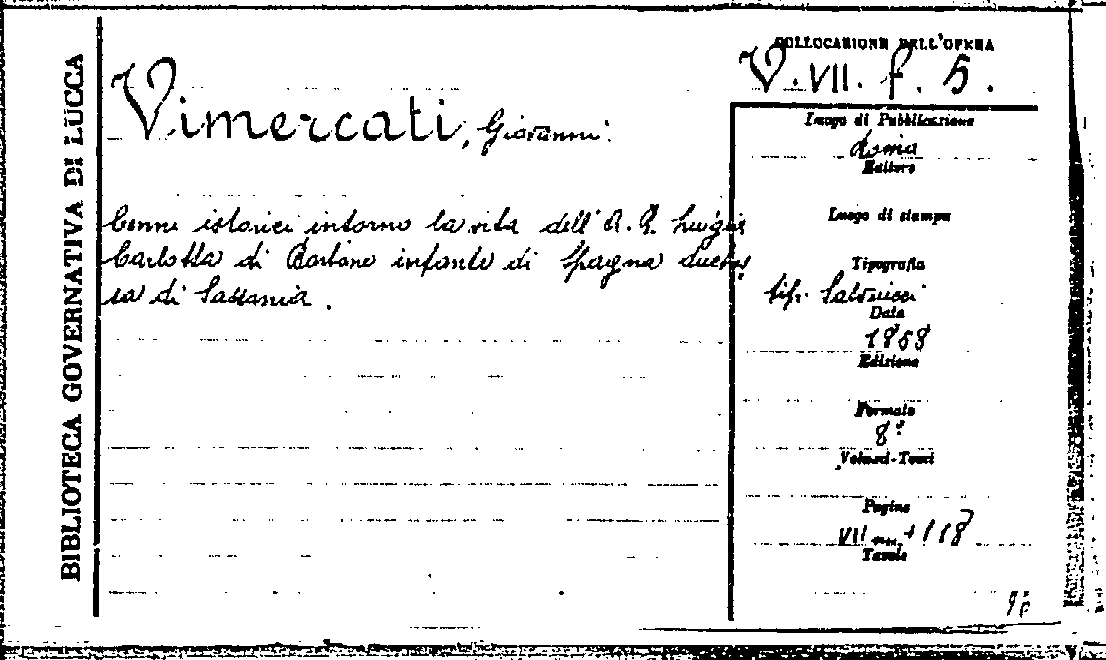 BIBLIOTECA GOVERNATIVA DI LUCCA
COLLOCAZIONE DELL'OPERA
V. VII. f. 5.
Vimercati, Giovanni.
Cenni istorici intorno la vita dell' A. R. Luigia
Carlotta di Borbone infante di Spagna duches
sa di Sassonia.
Luogo di Pubblicazione
Roma
Editore
Luogo di stampa
Tipografia
tip. Salviucci
Data
1858
Edizione
Formato
8°
Volumi-Tomi
Pagine
VII + 118
Tavole